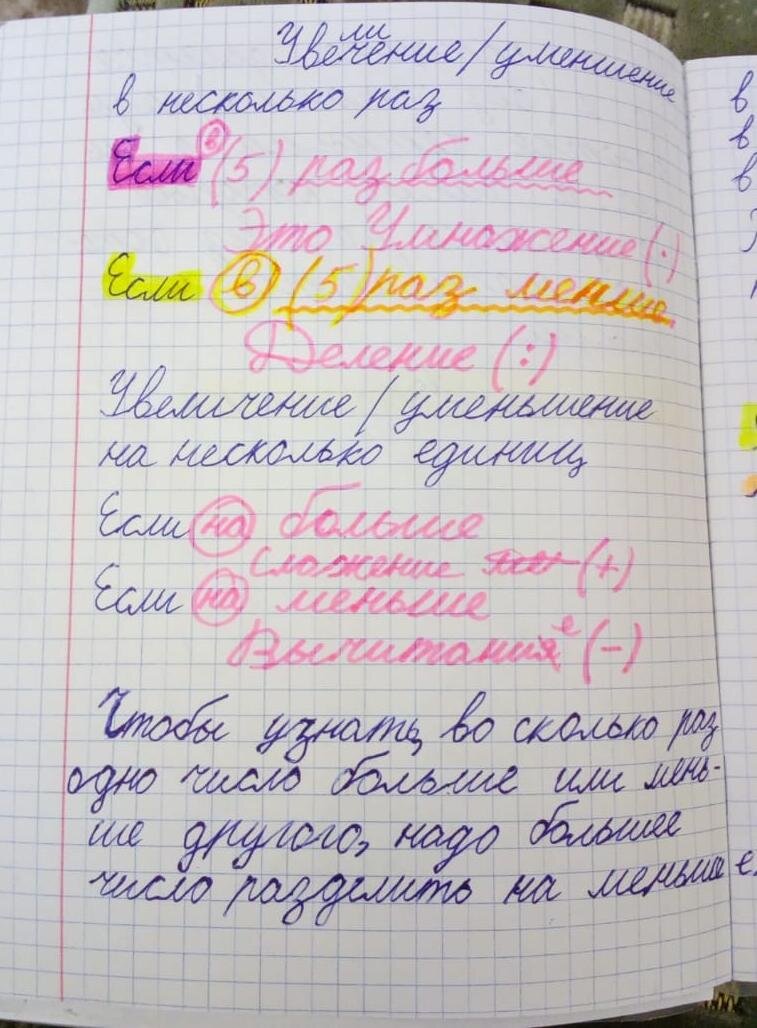 Увеличение/уменшение
в несколько раз
Если в (5) раз больше
Это Умножение (·)
Если в (5) раз меньше
Деление (:)
Увеличение/уменьшение
на несколько единиц
Если на больше
Сложение (+)
Если на меньше
Вычитание (-)
Чтобы узнать, во сколько раз
одно число больше или мень-
ше другого, надо большее
число разделить на меньшее.
в
в
в